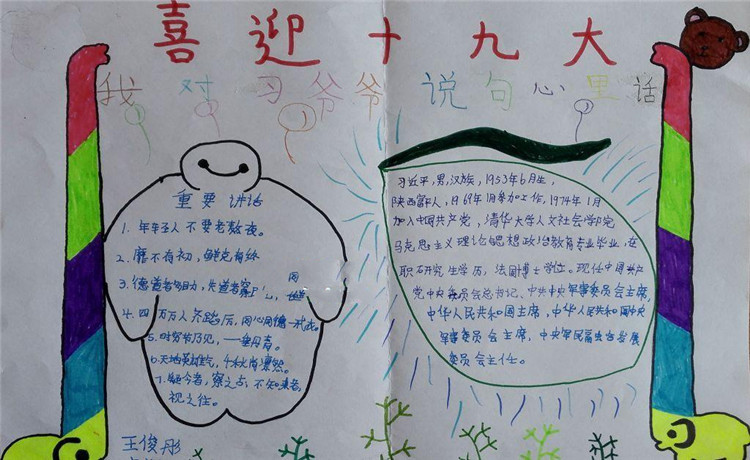 喜迎十九大
我对习爷爷说句心里话
重要讲话
1. 年轻人不要老熬夜。
2. 靡不有初,鲜克有终
3. 德道者多助,失道者寡
4. 四万万人齐蹈厉,同心同德一戎衣。
5. 时穷节乃见,一垂丹青。
6. 天地英雄气,千秋尚凛然。
7. 疑今者,察之古,不知来者,
视之往。
王俊彤
习近平,男,汉族,1953年6月生,
陕西富平人,1969年1月参加工作,1974年1月
加入中国共产党,清华大学人文社会学院
马克思主义理论思想政治教育专业毕业,在
职研究生学历,法学博士学位。现任中国共产
党中央委员会总书记、中共中央军事委员会主席,
中华人民共和国主席,中华人民共和国中央
军事委员会主席,中央军民融合发展
委员会主任。